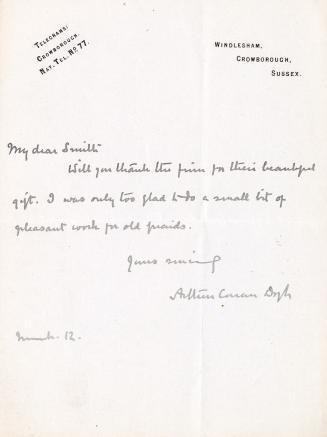 TELEGRAMS:
CROWBOROUGH.
NAT. TEL. NO. 77.
WINDLESHAM,
CROWBOROUGH,
SUSSEX.
My dear Smith
Will you thank the firm for their beautiful
gift. I was only too glad to do a small bit of
pleasant work for old friends.
Yours sincerely
Arthur Conan Doyle
March 12.